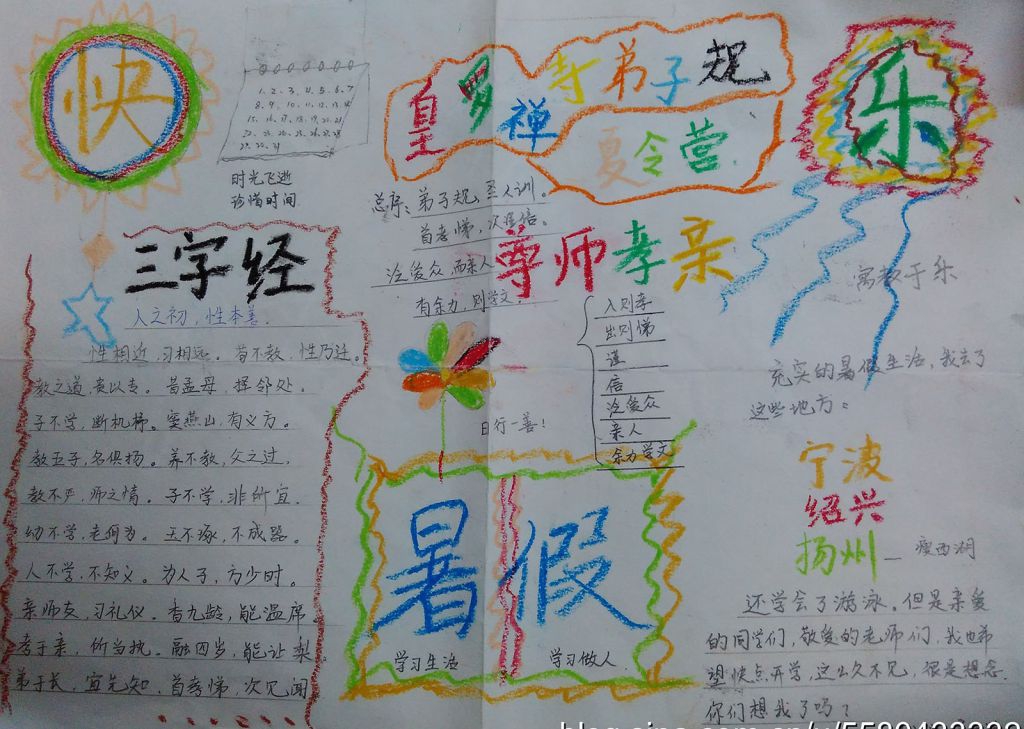 快
1. 2. 3. 4. 5. 6. 7
8. 9. 10. 11. 12. 13. 14
15. 16. 17. 18. 19. 20. 21
22. 23. 24. 25. 26. 27. 28
29. 30. 31
时光飞逝
珍惜时间
皇多禅寺弟子规
夏令营
乐
总序：弟子规，圣人训。
首孝悌，次谨信。
泛爱众，而亲人
有余力，则学文
尊师孝亲
入则孝
出则悌
谨
信
泛爱众
亲人
余力学文
日行一善！
三字经
人之初，性本善。
性相近，习相远。苟不教，性乃迁。
教之道，贵以专。昔孟母，择邻处。
子不学，断机杼。窦燕山，有义方。
教五子，名俱扬。养不教，父之过，
教不严，师之惰。子不学，非所宜，
幼不学，老何为。玉不琢，不成器。
人不学，不知义。为人子，方少时。
亲师友，习礼仪。香九龄，能温席。
孝于亲，所当执。融四岁，能让梨。
弟于长，宜先知，首孝悌，次见闻
暑假
学习生活
学习做人
寓教于乐
充实的暑假生活，我去了
这些地方。
宁波
绍兴
扬州—瘦西湖
还学会了游泳。但是亲爱
的同学们，敬爱的老师们，我也希
望快点开学，这么久不见，很是想念
你们想我了吗？